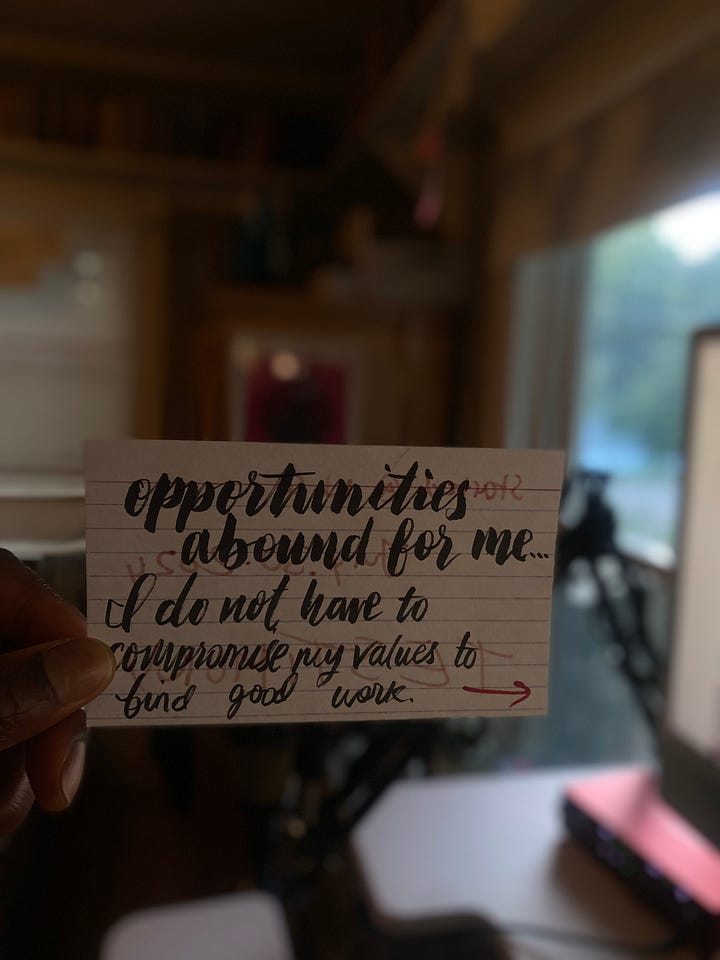 opportunities
abound for me...
I do not have to
compromise my values to
find good work.